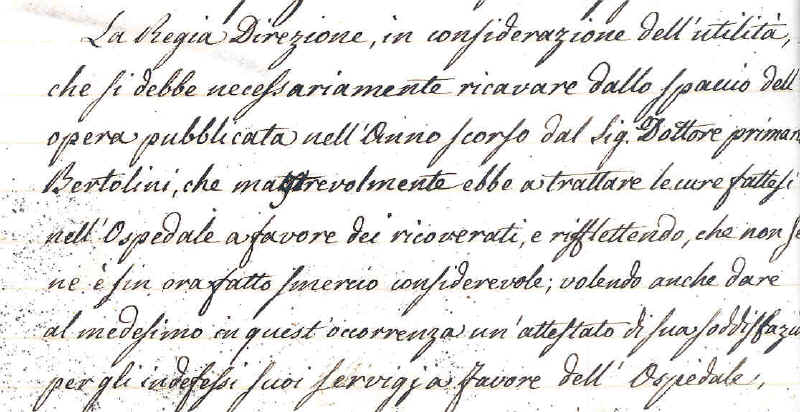 La Regia Direzione, in considerazione dell'utilità,
che si debbe necessariamente ricavare dallo spaccio dell'
opera pubblicata nell'Anno scorso dal Sig. Dottore primar
Bertolini, che maestrevolmente ebbe a trattare le cure fattesi
nell'Ospedale a favore dei ricoverati, e rifflettendo, che non se
ne è sin ora fatto smercio considerevole; volendo anche dare
al medesimo in quest'occorrenza un'attestato di sua soddisfazi
per gli indefessi suoi servigj a favore dell' Ospedale,